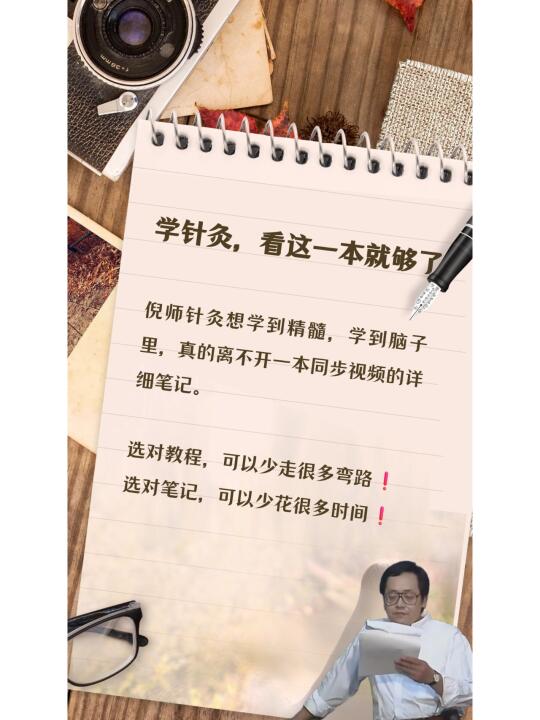 f=36mm
学针灸，看这一本就够了
倪师针灸想学到精髓，学到脑子
里，真的离不开一本同步视频的详
细笔记。
选对教程，可以少走很多弯路❗
选对笔记，可以少花很多时间❗